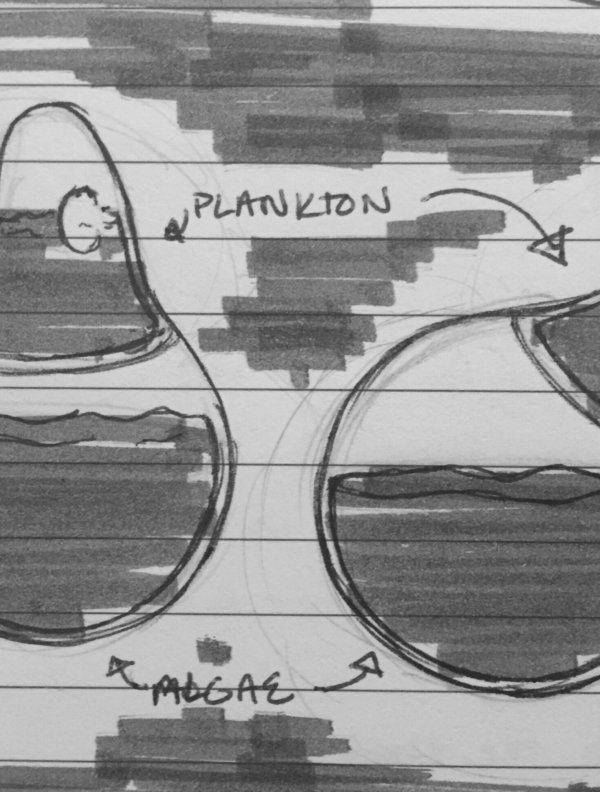 PLANKTON
ALGAE